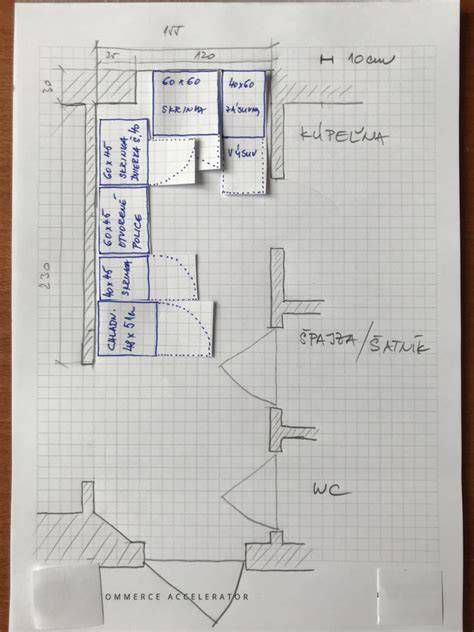 155
35 120
H 10cm
30
60x60
SKRINKA
40x60
ZÁSUVKY
VÝSUV
KÚPEĽŇA
60x45
SKRINKA
DVIERKA Š.40
60x45
OTVORENÉ
POLICE
230
40x45
SKRINKA
CHLADN.
48x51
ŠPAJZA/
ŠATNÍK
WC
OMMERCE ACCELERATOR